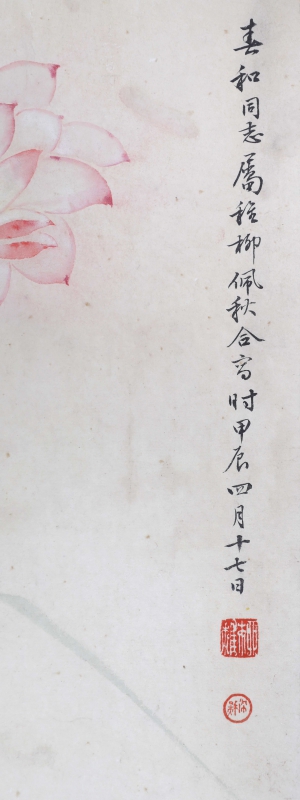 春和同志属稚柳佩秋合写时甲辰四月十七日